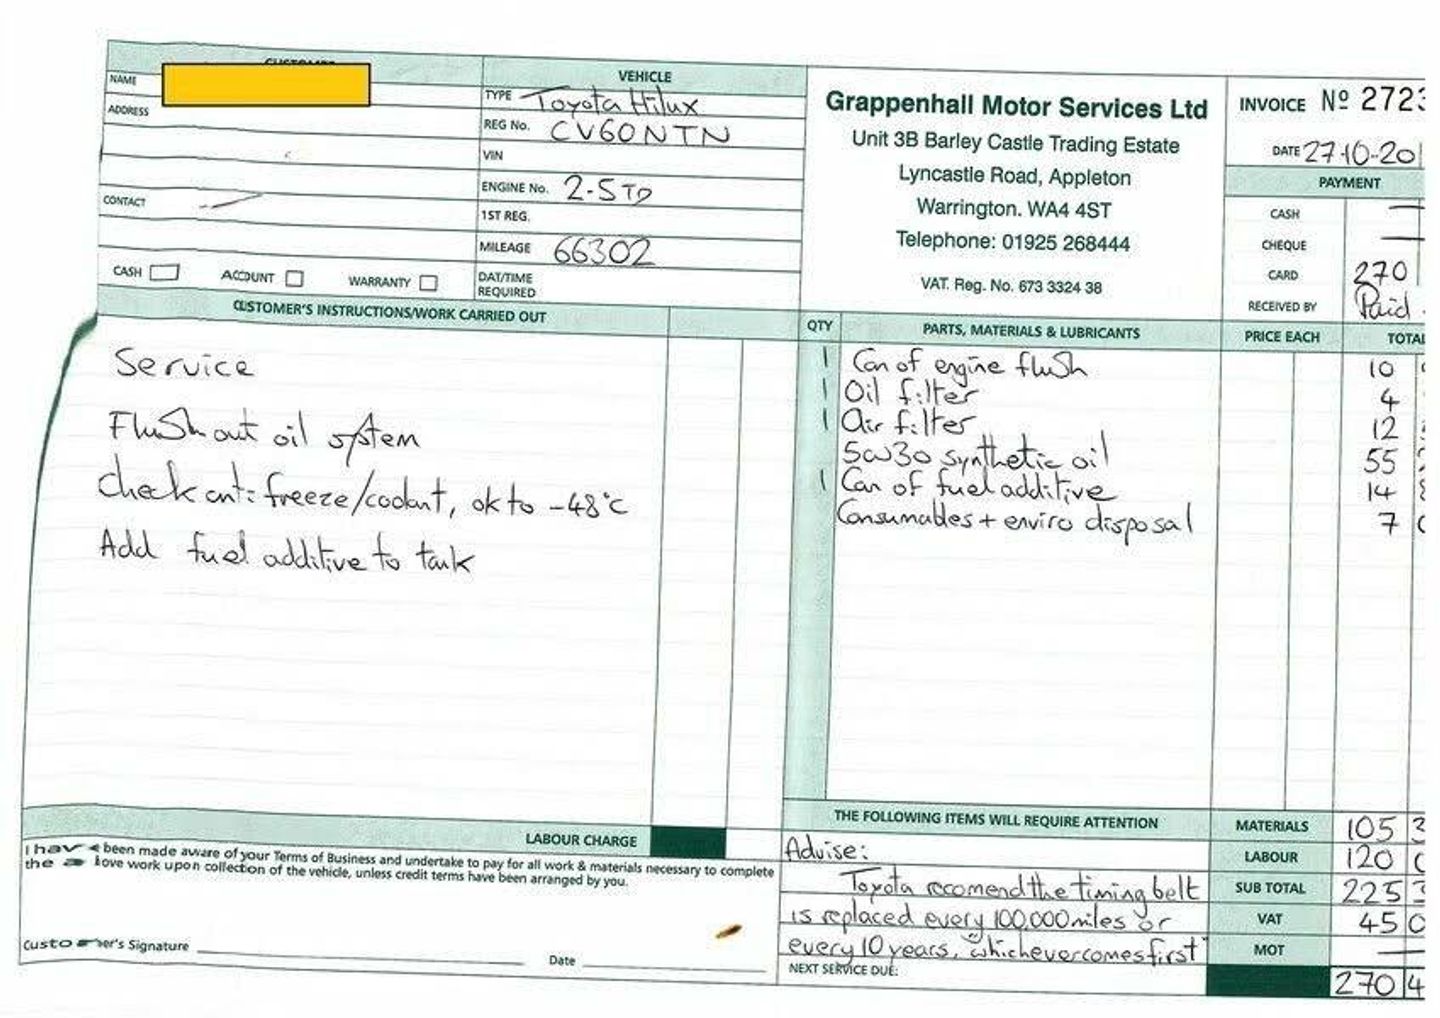 CUSTOMER
NAME
ADDRESS
CONTACT
CASH ACCOUNT WARRANTY
VEHICLE
TYPE Toyota Hilux
REG No. CV60NTN
VIN
ENGINE No. 2-5TD
1ST REG.
MILEAGE 66302
DAT/TIME
REQUIRED
Grappenhall Motor Services Ltd
Unit 3B Barley Castle Trading Estate
Lyncastle Road, Appleton
Warrington. WA4 4ST
Telephone: 01925 268444
VAT. Reg. No. 673 3324 38
INVOICE Nº 2723
DATE 27-10-20
PAYMENT
CASH —
CHEQUE —
CARD 270
RECEIVED BY Paid
CUSTOMER'S INSTRUCTIONS/WORK CARRIED OUT
Service
Flush out oil system
Check anti freeze/coolant, ok to -48°c
Add fuel additive to tank
QTY PARTS, MATERIALS & LUBRICANTS PRICE EACH TOTAL
1 Can of engine flush 10
1 Oil filter 4
1 Air filter 12
5w30 synthetic oil 55
1 Can of fuel additive 14
Consumables + enviro disposal 7
LABOUR CHARGE
I have been made aware of your Terms of Business and undertake to pay for all work & materials necessary to complete
the above work upon collection of the vehicle, unless credit terms have been arranged by you.
Customer's Signature Date
THE FOLLOWING ITEMS WILL REQUIRE ATTENTION
Advise:
Toyota recomend the timing belt
is replaced every 100,000 miles or
every 10 years, "whichever comes first"
NEXT SERVICE DUE:
MATERIALS 105 3
LABOUR 120 0
SUB TOTAL 225 3
VAT 45 0
MOT —
270 4